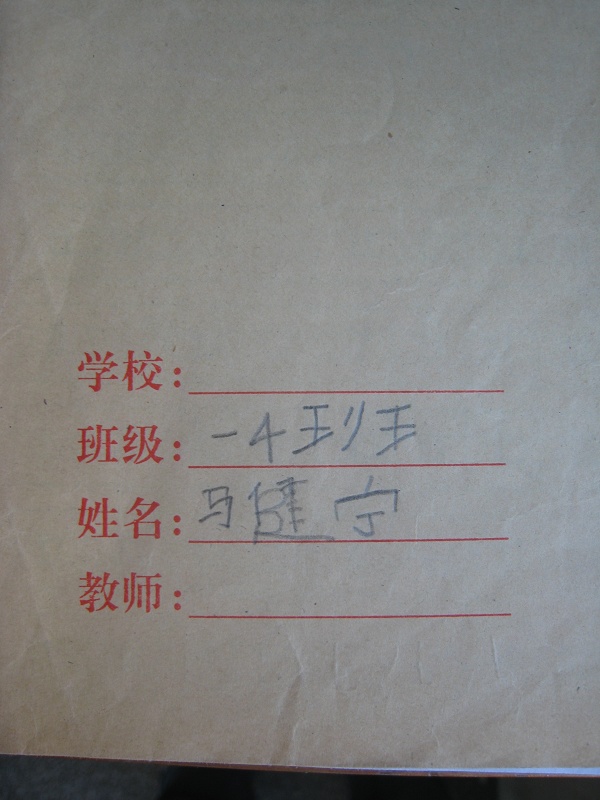 学校:
班级: 一4班
姓名: 马健宁
教师: